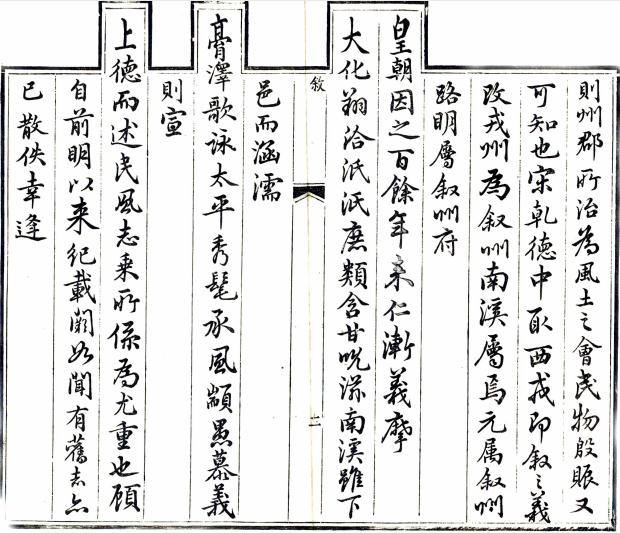 則州郡所治為風土之會民物殷賑又
可知也宋乾德中取西戎即敘之義
改戎州為叙州南溪屬焉元属叙州
路明屬叙州府
皇朝因之百餘年来仁漸義摩
大化翔洽泯泯庶類含甘吮滋南溪雖下
敘
二
邑而涵濡
膏澤歌詠太平秀髦承風顓愚慕義
則宣
上德而述民風志乗所係為尤重也顧
自前明以来紀載闕如聞有舊志亦
已散佚幸逢